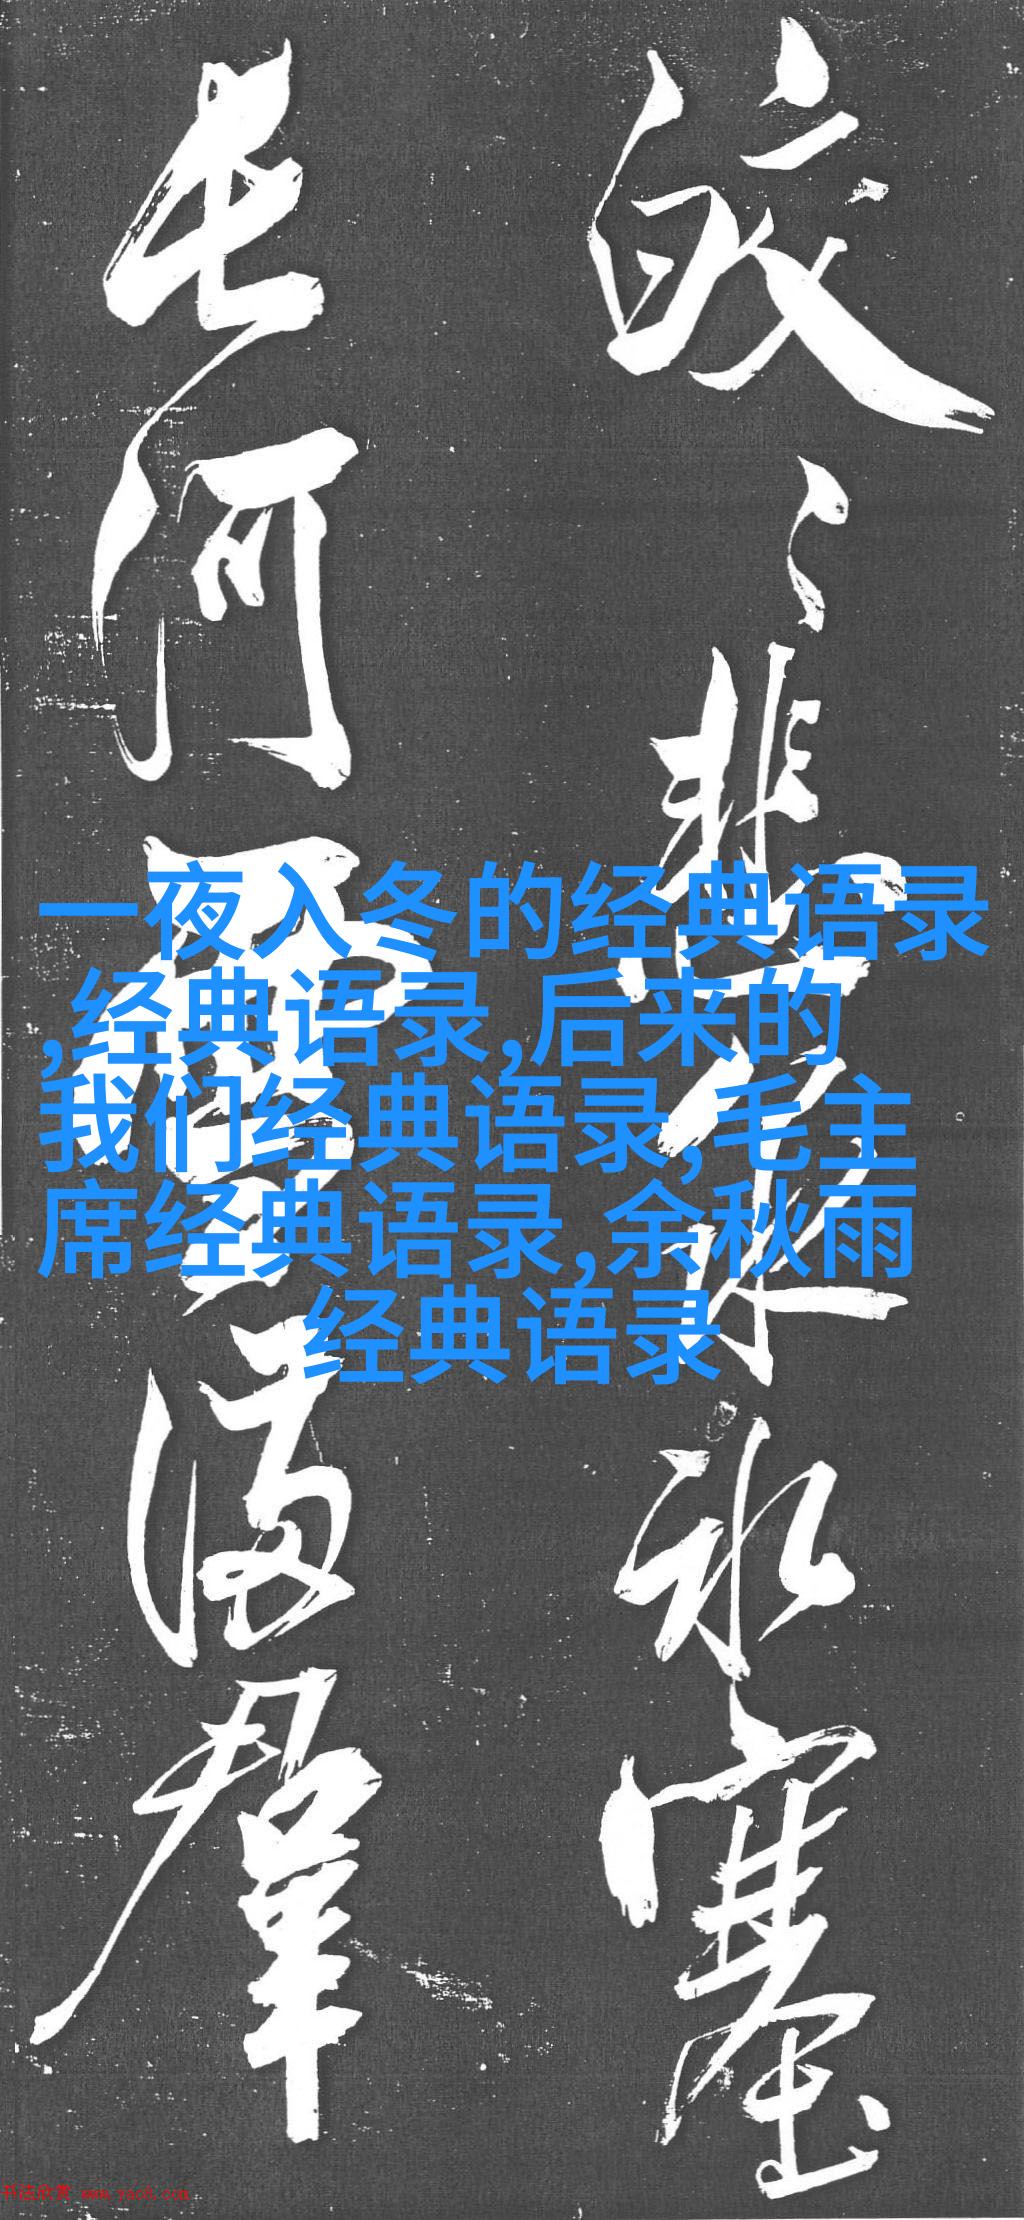 皎〻悲冰塞
長河雪滿群
一夜入冬的经典语录
,经典语录,后来的
我们经典语录,毛主
席经典语录,余秋雨
经典语录
书法欣赏 www.yac8.com